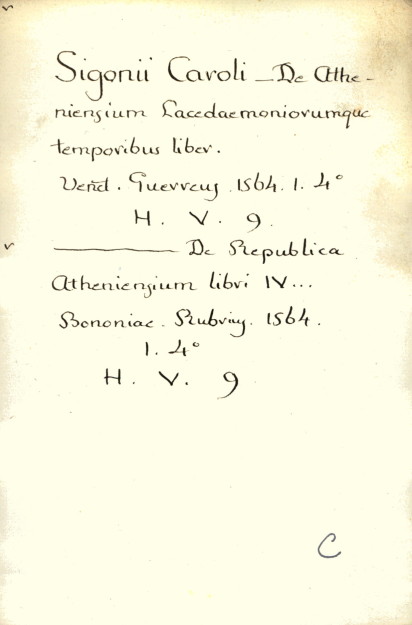 Sigonii Caroli — De Athe-
niensium Lacedaemoniorumque
temporibus liber.
1564. 1. 4°
H. V. 9.
——— De Republica
Atheniensium libri IV...
Bononiae. Rubriy. 1564.
1. 4°
H. V. 9
C